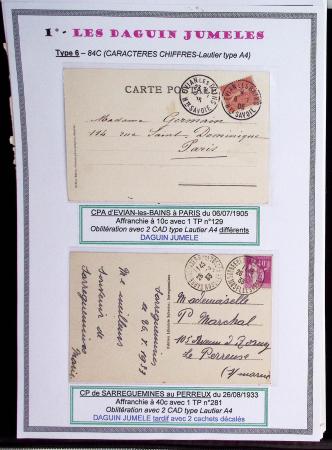 1°- LES DAGUIN JUMELES
Type 6 – 84C (CARACTERES CHIFFRES-Lautier type A4)
CARTE POSTALE
EVIAN-LES-BAINS
Hte SAVOIE
EVIAN-LES-BAINS
Hte SAVOIE
Madame Germain
114 rue Saint-Dominique
Paris
CPA d'EVIAN-les-BAINS à PARIS du 06/07/1905
Affranchie à 10c avec 1 TP n°129
Oblitération avec 2 CAD type Lautier A4 différents
DAGUIN JUMELE
Sarreguemines
le 26.8.1933
Meilleurs
souvenir de
Sarreguemines
Marie
Mademoiselle
P. Marchal
Le Perreux
CP de SARREGUEMINES au PERREUX du 26/08/1933
Affranchie à 40c avec 1 TP n°281
Oblitération avec 2 CAD type Lautier A4
DAGUIN JUMELE tardif avec 2 cachets décalés